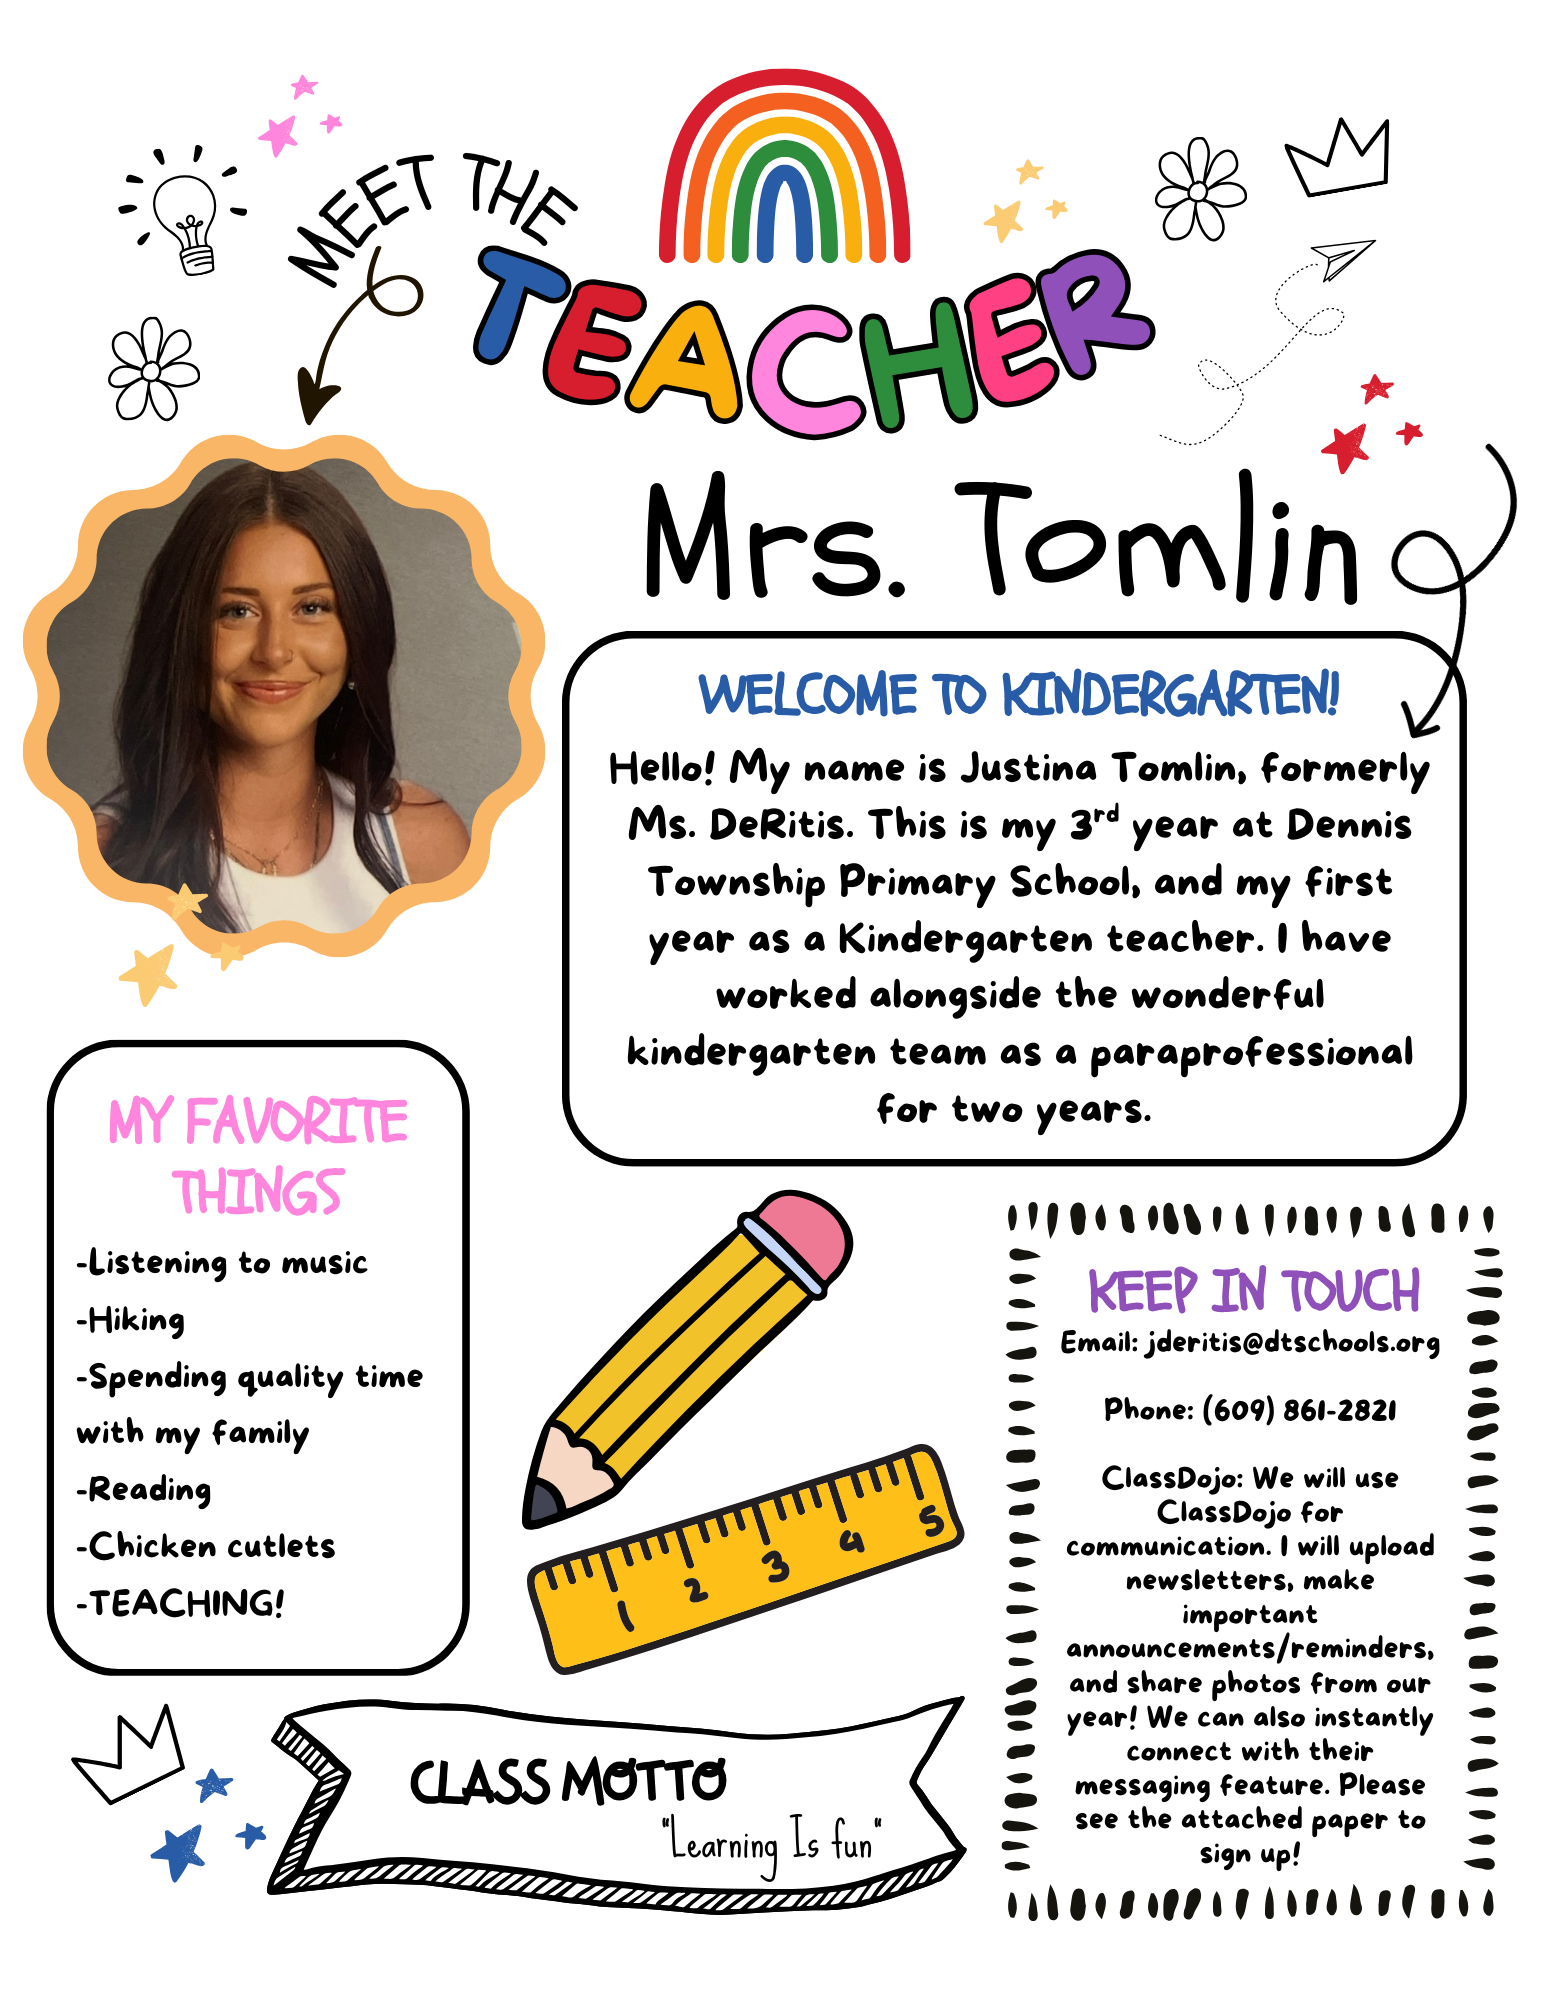 MEET THE
TEACHER
Mrs. Tomlin
WELCOME TO KINDERGARTEN!
Hello! My name is Justina Tomlin, formerly
Ms. DeRitis. This is my 3rd year at Dennis
Township Primary School, and my first
year as a Kindergarten teacher. I have
worked alongside the wonderful
kindergarten team as a paraprofessional
for two years.
MY FAVORITE
THINGS
-Listening to music
-Hiking
-Spending quality time
with my family
-Reading
-Chicken cutlets
-TEACHING!
1 2 3 4 5
KEEP IN TOUCH
Email: jderitis@dtschools.org
Phone: (609) 861-2821
ClassDojo: We will use
ClassDojo for
communication. I will upload
newsletters, make
important
announcements/reminders,
and share photos from our
year! We can also instantly
connect with their
messaging feature. Please
see the attached paper to
sign up!
CLASS MOTTO
"Learning Is fun"